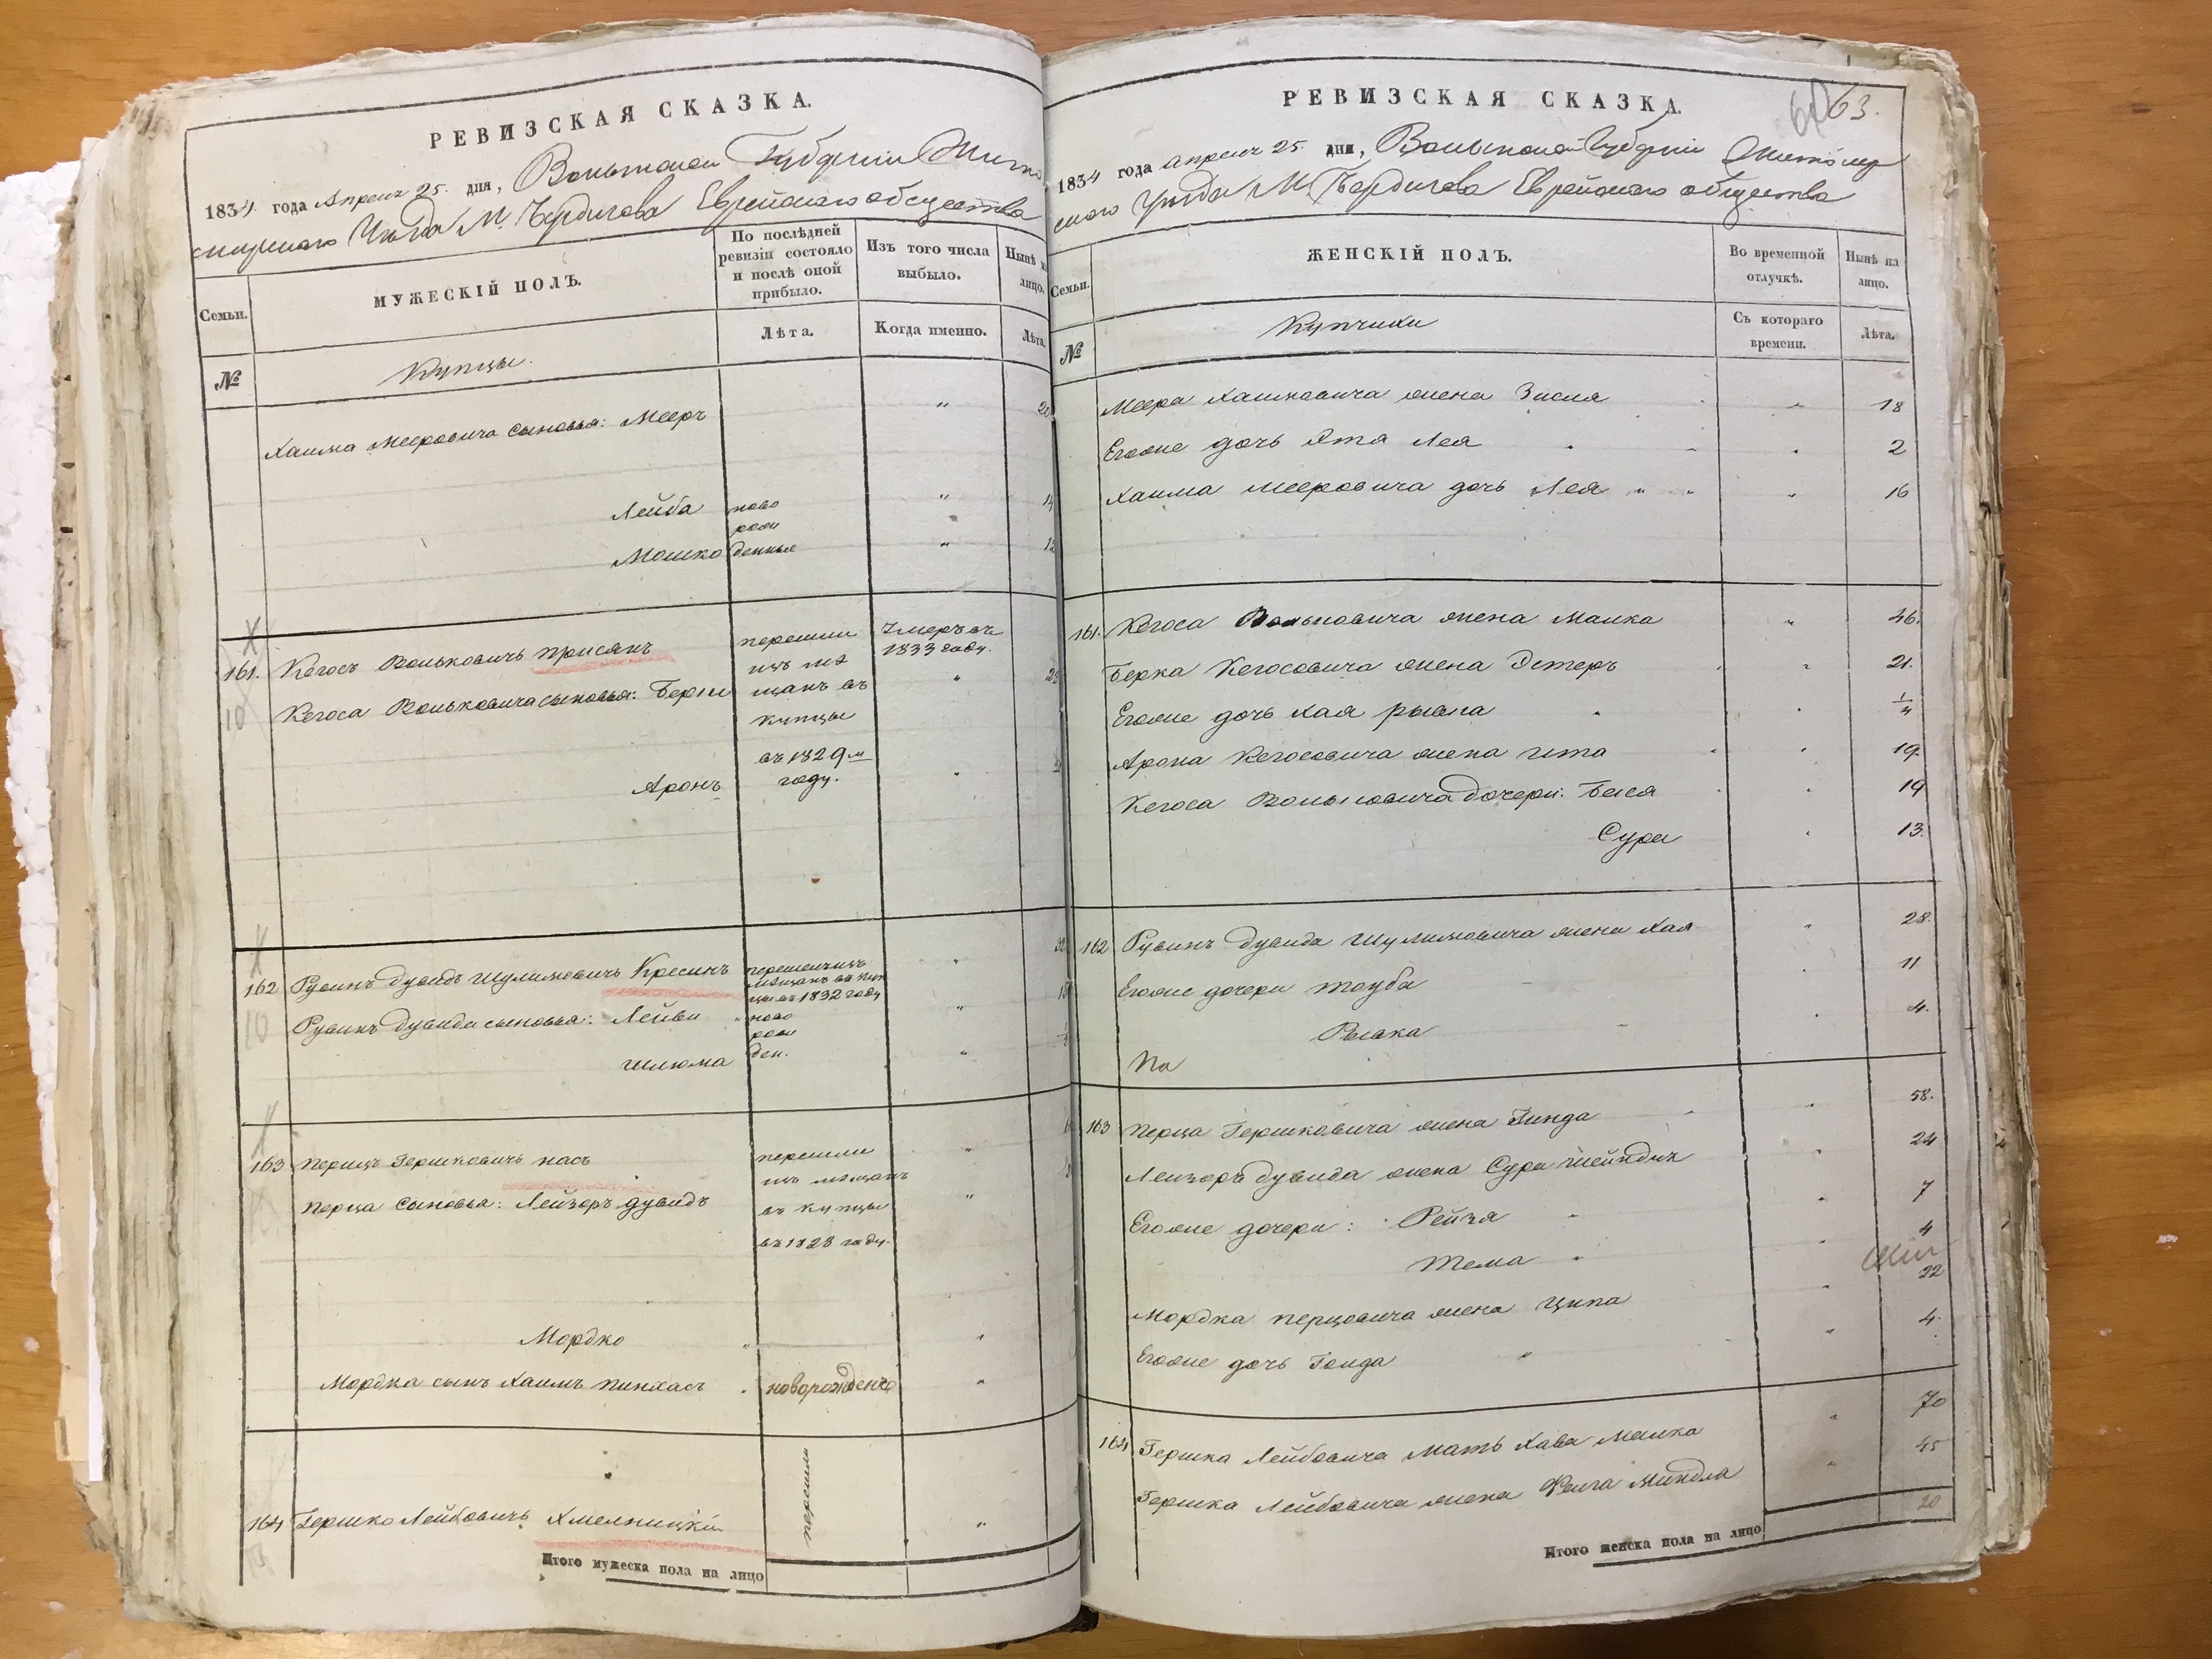 РЕВИЗСКАЯ СКАЗКА.
1834 года Апреля 25. дня, Волынской Губерніи Жито
мирскаго Уѣзда М. Бердичева Еврейскаго общества
Семьи.
МУЖЕСКІЙ ПОЛЪ.
По послѣдней ревизіи состояло и послѣ оной прибыло.
Изъ того числа выбыло.
Нынѣ на лицо.
№
Купцы.
Лѣта.
Когда именно.
Лѣта.
Хаима Мееровича сыновья: Мееръ " 20
Лейба ново "
рож
Мошко денные " 12
161. Кегосъ Вольковичъ Присянъ перешли Умеръ въ
изъ мѣ 1833 году.
10 Кегоса Вольковича сыновья: Берко щанъ въ "
купцы
въ 1829 м
Аронъ году. "
162 Рувинъ Дувидъ Шулимовичъ Кресинъ перешелъ изъ "
мѣщанъ въ куп
цы въ 1832 году
10 Рувинъ Дувида сыновья: Лейви ново "
рож
Шлюма ден. "
163 Перецъ Гершковичъ Касъ перешли "
изъ мѣщанъ
Перца сыновья: Лейзеръ Дувидъ въ купцы "
въ 1828 году.
Мордко " "
Мордка сынъ Хаимъ Пинхасъ новорожденъ "
164 Гершко Лейбовичъ Хмелницкій перешли "
Итого мужеска пола на лицо
РЕВИЗСКАЯ СКАЗКА.
63.
1834 года Апреля 25. дня, Волынской Губерніи Житомир
скаго Уѣзда М. Бердичева Еврейскаго общества
Семьи.
ЖЕНСКІЙ ПОЛЪ.
Во временной отлучкѣ.
Нынѣ на лицо.
№
Купчихи
Съ котораго времени.
Лѣта.
Меера Хаимовича жена Зисля " 18
Егоже дочь Ита Лея " 2
Хаима Мееровича дочь Лея " 16
161. Кегоса Вольковича жена Малка " 46.
Берка Кегосовича жена Эстеръ " 21.
Егоже дочь Хая Рывка " 1/4
Арона Кегосовича жена Гита " 19.
Кегоса Вольковича дочери: Бася " 19
Сура " 13.
162 Рувинъ Дувида Шулимовича жена Хая " 28.
Егоже дочери Тауба " 11
Рывка " 4.
По
163 Перца Гершковича жена Гинда " 58.
Лейзоръ Дувида жена Сура Шейндля " 24
Егоже дочери: Рейзя " 7
Тема " 4
Мордка Перцовича жена Ципа " 22
Егоже дочь Голда " 4.
164 Гершка Лейбовича мать Хава Малка " 70
Гершка Лейбовича жена Фейга Миндля " 45
Итого женска пола на лицо 20